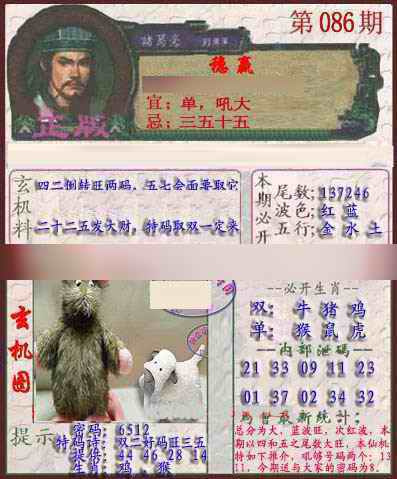 第086期
諸葛亮
稳赢
宜：单，吼大
忌：三五十五
正版
玄机料
四二倒赫旺两码，五七会面要取它
二十二五发大财，特码取双一定来
本期必开
尾数：137246
波色：红 蓝
五行：金 水 土
玄机图
--必开生肖--
双： 牛 猪 鸡
单： 猴 鼠 虎
--内部泄码--
21 33 09 11 23
01 37 02 34 32
最新统计：
总分为大，蓝波旺，次红波，本
期以四和五之尾数大旺，本仙机
特如下推介，吼够号码两个：13
11，今期送与大家的密码为8．
提示
密码： 6512
特码诗：双二好码旺三五
提供： 44 46 28 14
生肖： 鸡 ，猴